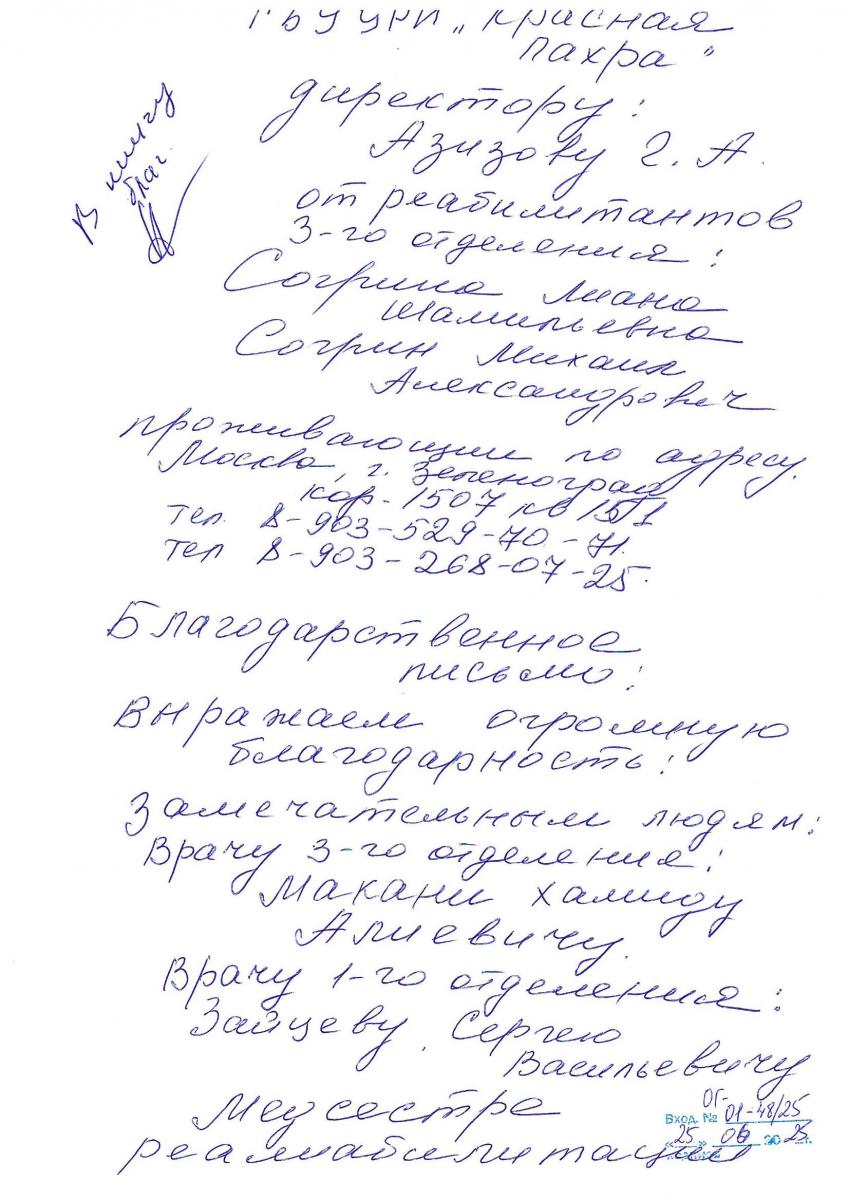 ГБУ УРИ „Красная
Пахра"
директору:
Азизову Г. А.
В книгу
благ.
от реабилитантов
3-го отделения:
Согрина Лиана
Шамильевна
Согрин Михаил
Александрович
проживающим по адресу.
Москва, г. Зеленоград
кор. 1507 кв 151
тел. 8-903-529-70-71.
тел 8-903-268-07-25.
Благодарственное
письмо:
Выражаем огромную
благодарность:
Замечательным людям:
Врачу 3-го отделения:
Макани Хамиду
Алиевичу.
Врачу 1-го отделения:
Зайцеву Сергею
Васильевичу
Медсестре
реамабилитации
ОГ-
Вход. № 01-48/25
"25" 06 2025 г.